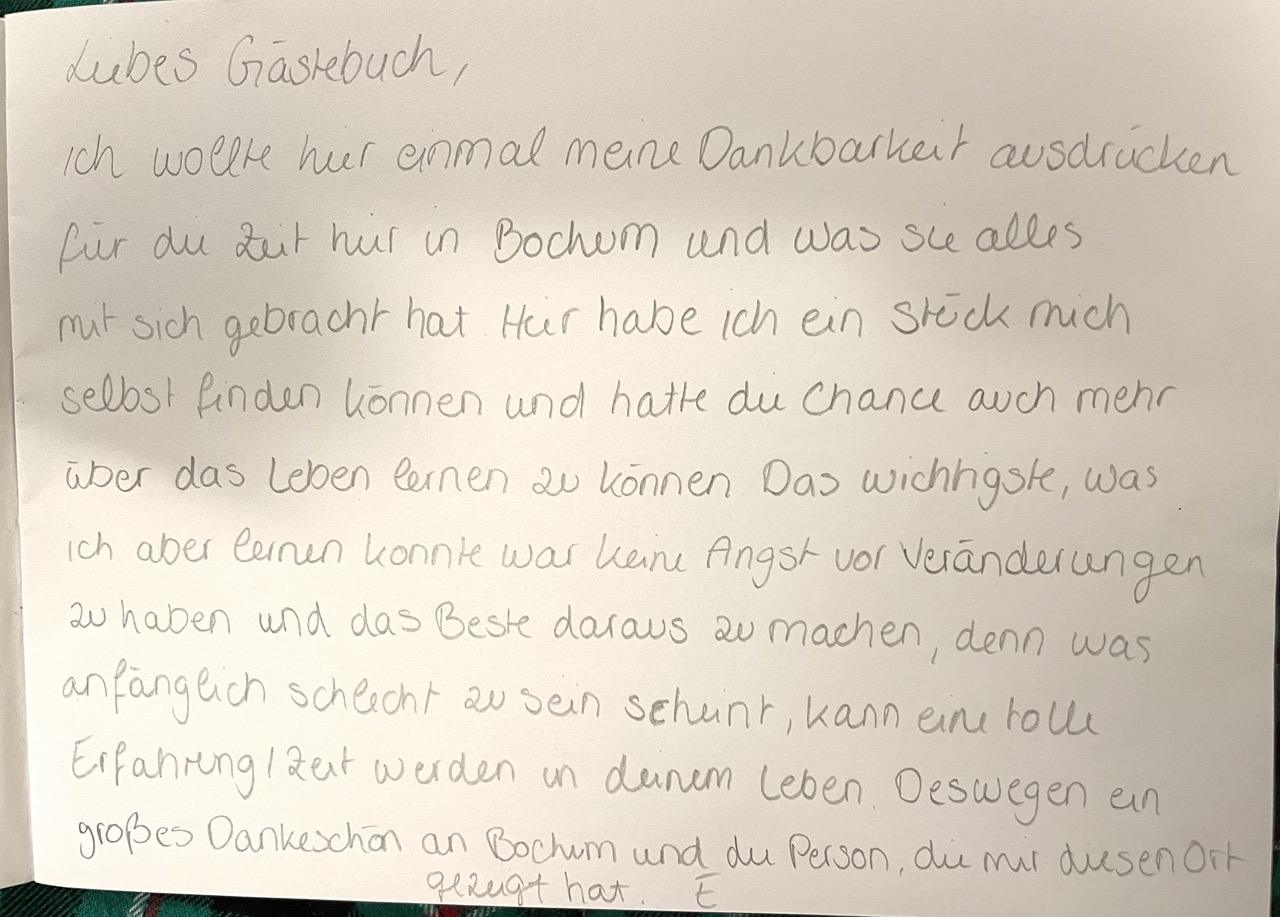 Liebes Gästebuch,
ich wollte hier einmal meine Dankbarkeit ausdrücken
für die Zeit hier in Bochum und was sie alles
mit sich gebracht hat. Hier habe ich ein Stück mich
selbst finden können und hatte die Chance auch mehr
über das Leben lernen zu können. Das wichtigste, was
ich aber lernen konnte war keine Angst vor Veränderungen
zu haben und das Beste daraus zu machen, denn was
anfänglich schlecht zu sein scheint, kann eine tolle
Erfahrung/Zeit werden in deinem Leben. Deswegen ein
großes Dankeschön an Bochum und die Person, die mir diesen Ort
gezeigt hat. E